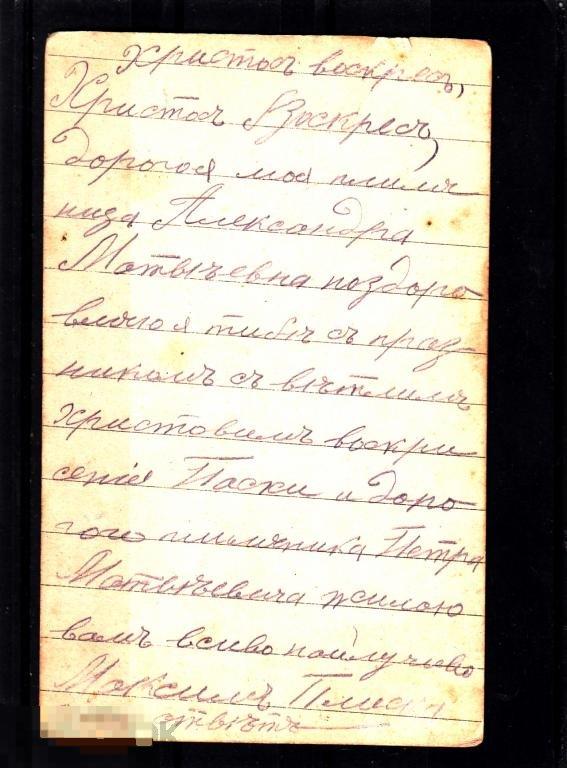 Христосъ воскресъ,
Христосъ Воскресъ,
дорогая моя плимя
ница Александра
Матвѣевна поздоро
вляю я тибѣ съ праз-
никомъ съ вѣтлимъ
Христовимъ воскри
сенія Паски и доро
гого плимяника Петра
Матвѣевича жилаю
вамъ всиво наилучиво
Максимъ
отвѣтъ